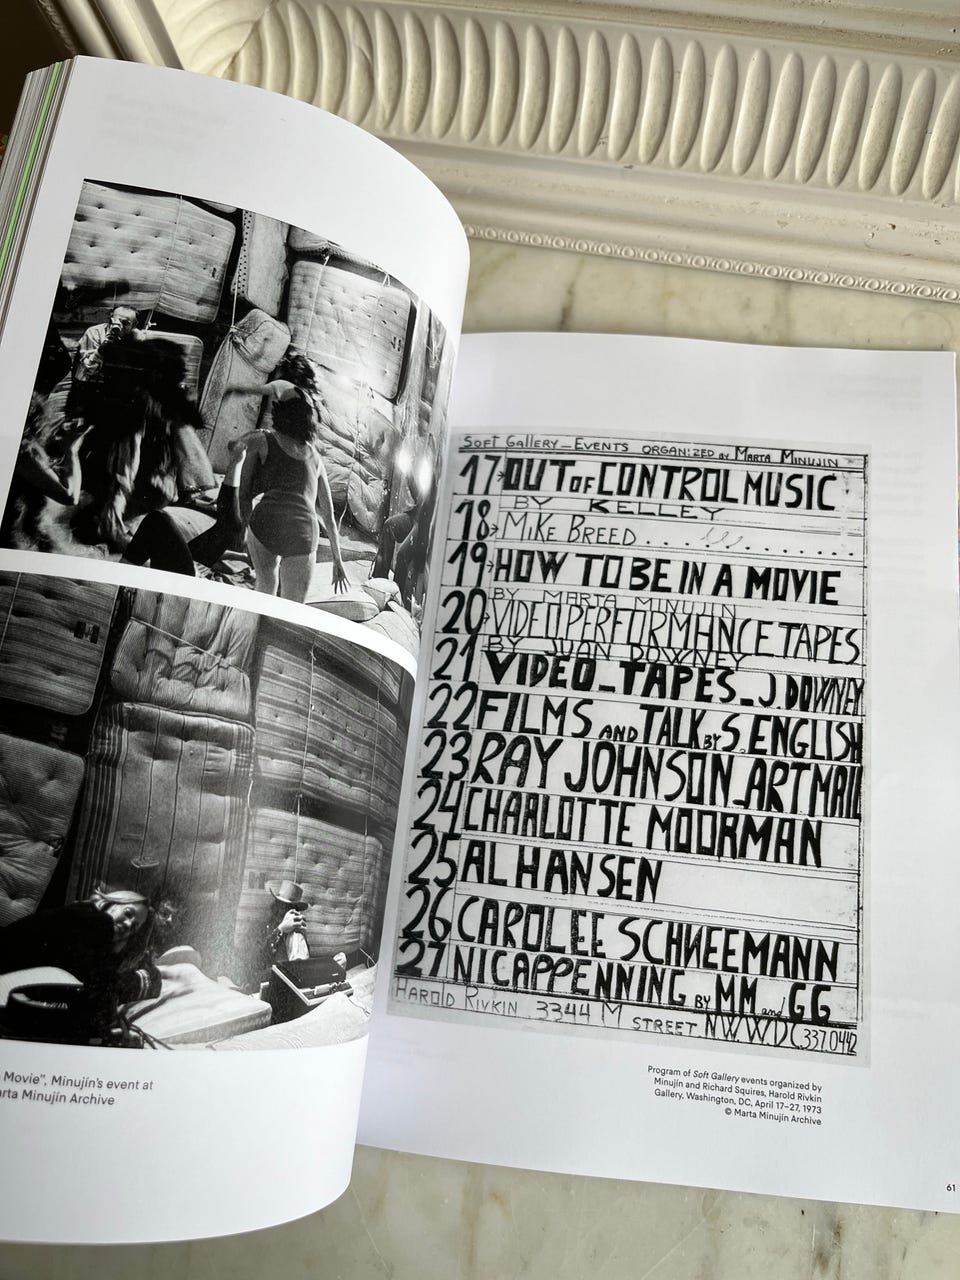 Movie", Minujín's event at
arta Minujín Archive
SOFT GALLERY_EVENTS ORGANIZED BY MARTA MINUJIN
17 OUT OF CONTROL MUSIC
BY KELLEY
18 MIKE BREED . . . . . . . . . . . .
19 HOW TO BE IN A MOVIE
BY MARTA MINUJIN
20 VIDEO PERFORMANCE TAPES
BY JUAN DOWNEY
21 VIDEO_TAPES_J. DOWNEY
22 FILMS AND TALK BY S. ENGLISH
23 RAY JOHNSON_ARTMAIL
24 CHARLOTTE MOORMAN
25 AL HANSEN
26 CAROLEE SCHNEEMANN
27 NICAPPENNING BY MM and GG
HAROLD RIVKIN 3344 M STREET N.W. W.D.C. 337.0442
Program of Soft Gallery events organized by
Minujín and Richard Squires, Harold Rivkin
Gallery, Washington, DC, April 17–27, 1973
© Marta Minujín Archive
61